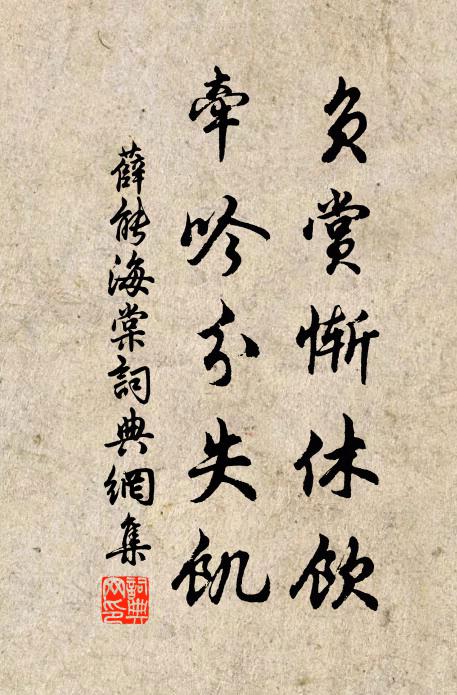 負賞慚休飲
牽吟分失飢
薛能海棠詞典網集
詞典